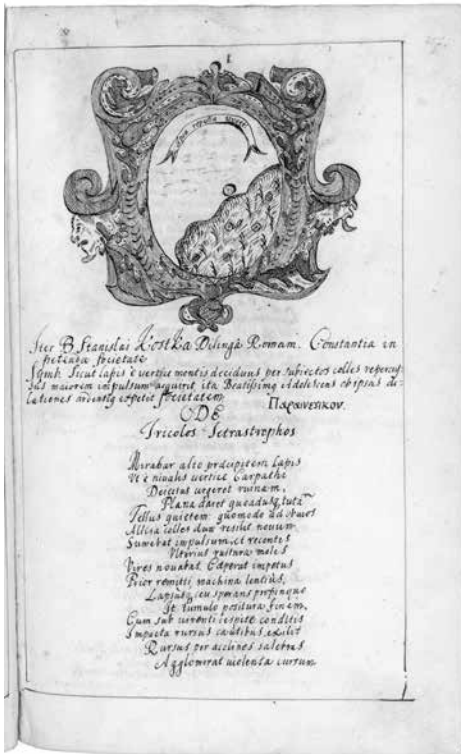 1
repulsa
Iter B. Stanislai Kostka Dilingâ Romam. Constantia in
petenda societate
Symb. Sicut lapis è vertice montis deciduus per subiectos colles repercus
sus maiorem impulsum acquirit, ita Beatissimg Adolescens ob ipsas di
lationes ardentig expetit societatem.
Παραινετικον.
ODE
Tricolos Tetrastrophos
Mirabar alto præcipitem lapis
Vt è nivalis vertice Carpathi
Deiectus urgeret ruinam,
Plana daret quoadusq, tuta
Tellus quietem: quomodo ad obvies
Allisa colles dum resilit novum
Sumebat impulsum, et recentes
Vlterius ruitura moles
Vires novabat. Cæperat impetus
Prior remitti, machina lentius,
Lapsusq, ceu sperans propinquo
Se tumulo positura finem,
Cum sub virenti cespite conditis
Impacta rursus cautibus exilit
Rursus per acclines salebras
Agglomerat violenta cursum